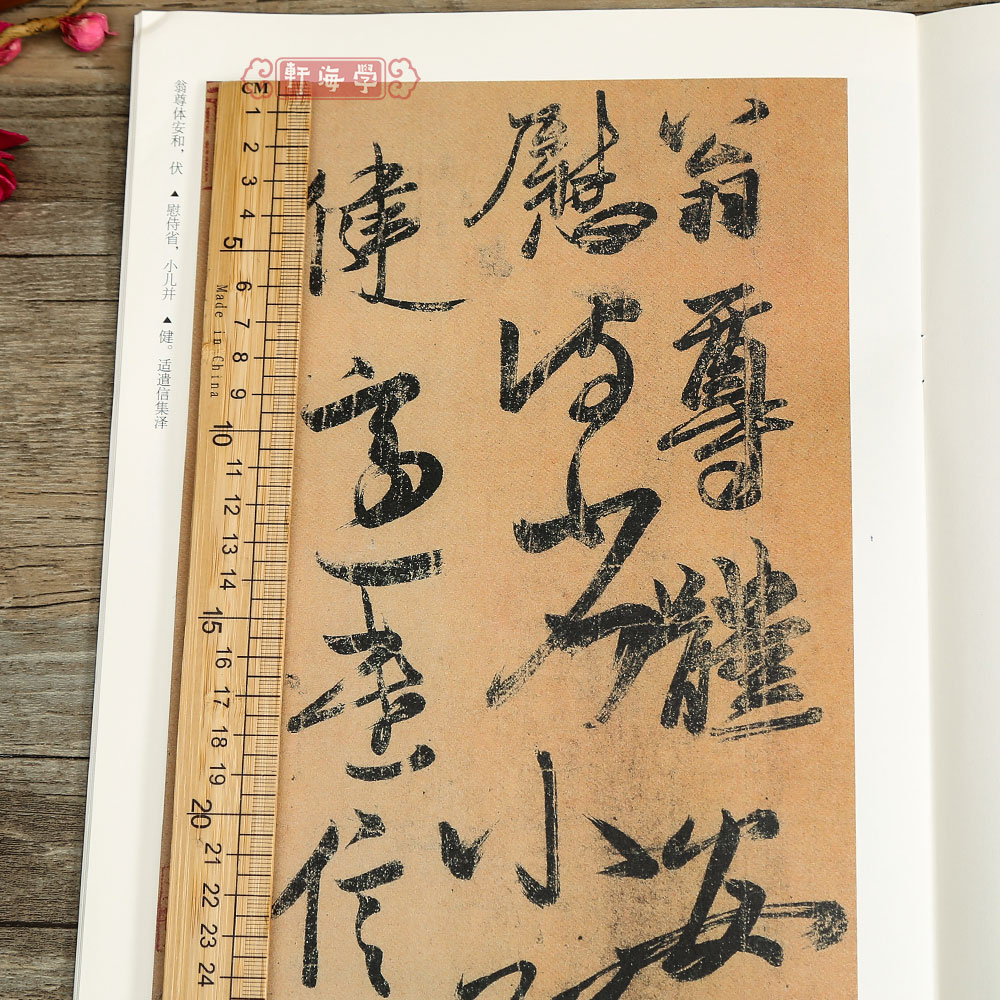 軒海学
翁尊體安
慰侍省小
健適遣信
翁尊体安和，伏 ▲ 慰侍省，小儿并 ▲ 健。适遣信集泽
CM
1
2
3
4
5
6
7
8
9
10
11
12
13
14
15
16
17
18
19
20
21
22
23
24
Made in China